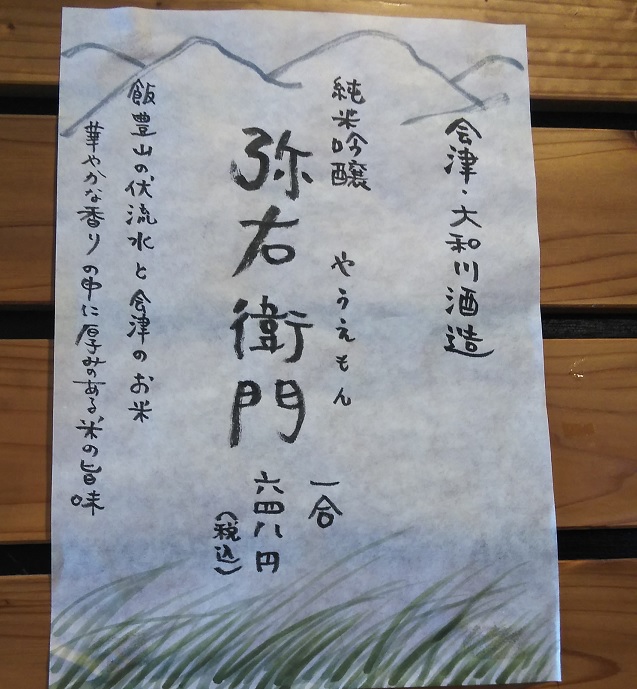 会津・大和川酒造
純米吟醸 やうえもん
弥右衛門
一合
六四八円
(税込)
飯豊山の伏流水と会津のお米
華やかな香りの中に厚みのある米の旨味